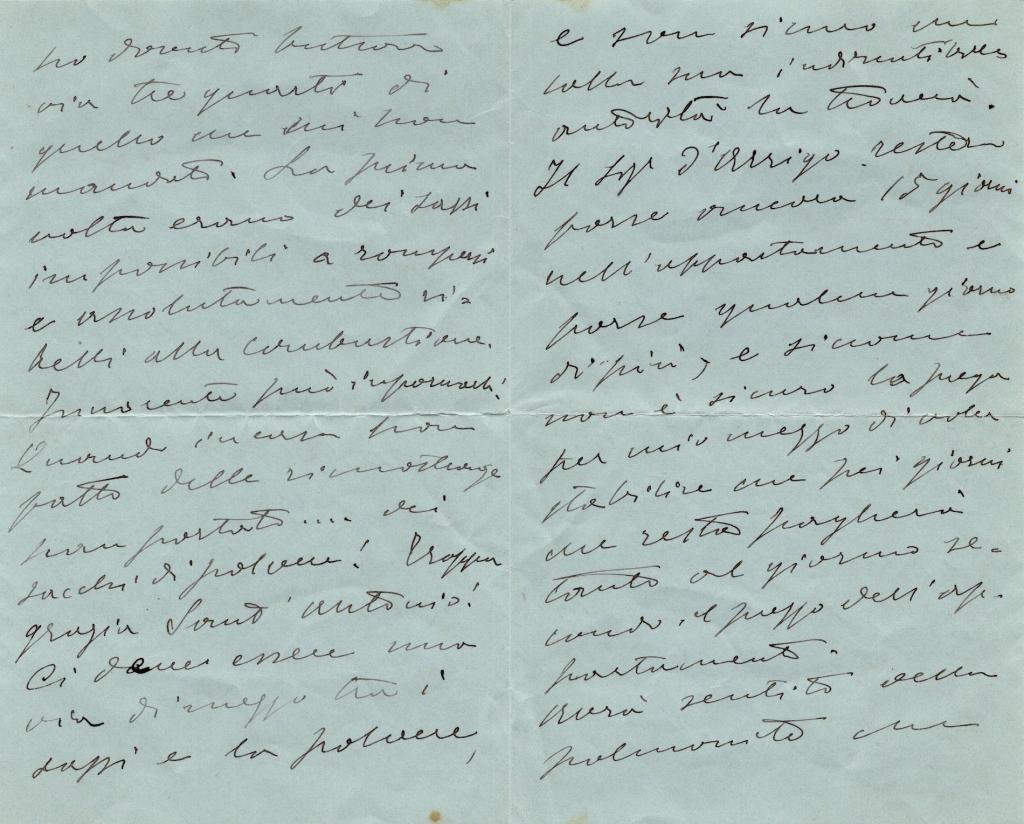 ho dovuto buttare
via tre quarti di
quello che mi han
mandato. La prima
volta erano dei sassi
impossibili a rompersi
e assolutamente ri-
belli alla combustione.
Innocente può informarsi!
Quando in casa han
fatto delle rimostranze
han portato.... dei
sacchi di polvere! Troppa
grazia Sant'Antonio!
Ci deve essere una
via di mezzo tra i
sassi e la polvere,
e son sicuro che
colla sua indiscutibile
autorità la troverà.
Il Sigr D'Arrigo resterà
forse ancora 15 giorni
nell'appartamento e
forse qualche giorno
di più, e siccome
non è sicuro la prega
per mio mezzo di voler
stabilire che pei giorni
che resta pagherà
tanto al giorno se-
condo il prezzo dell'ap-
partamento.
Avrà sentito della
polmonite che